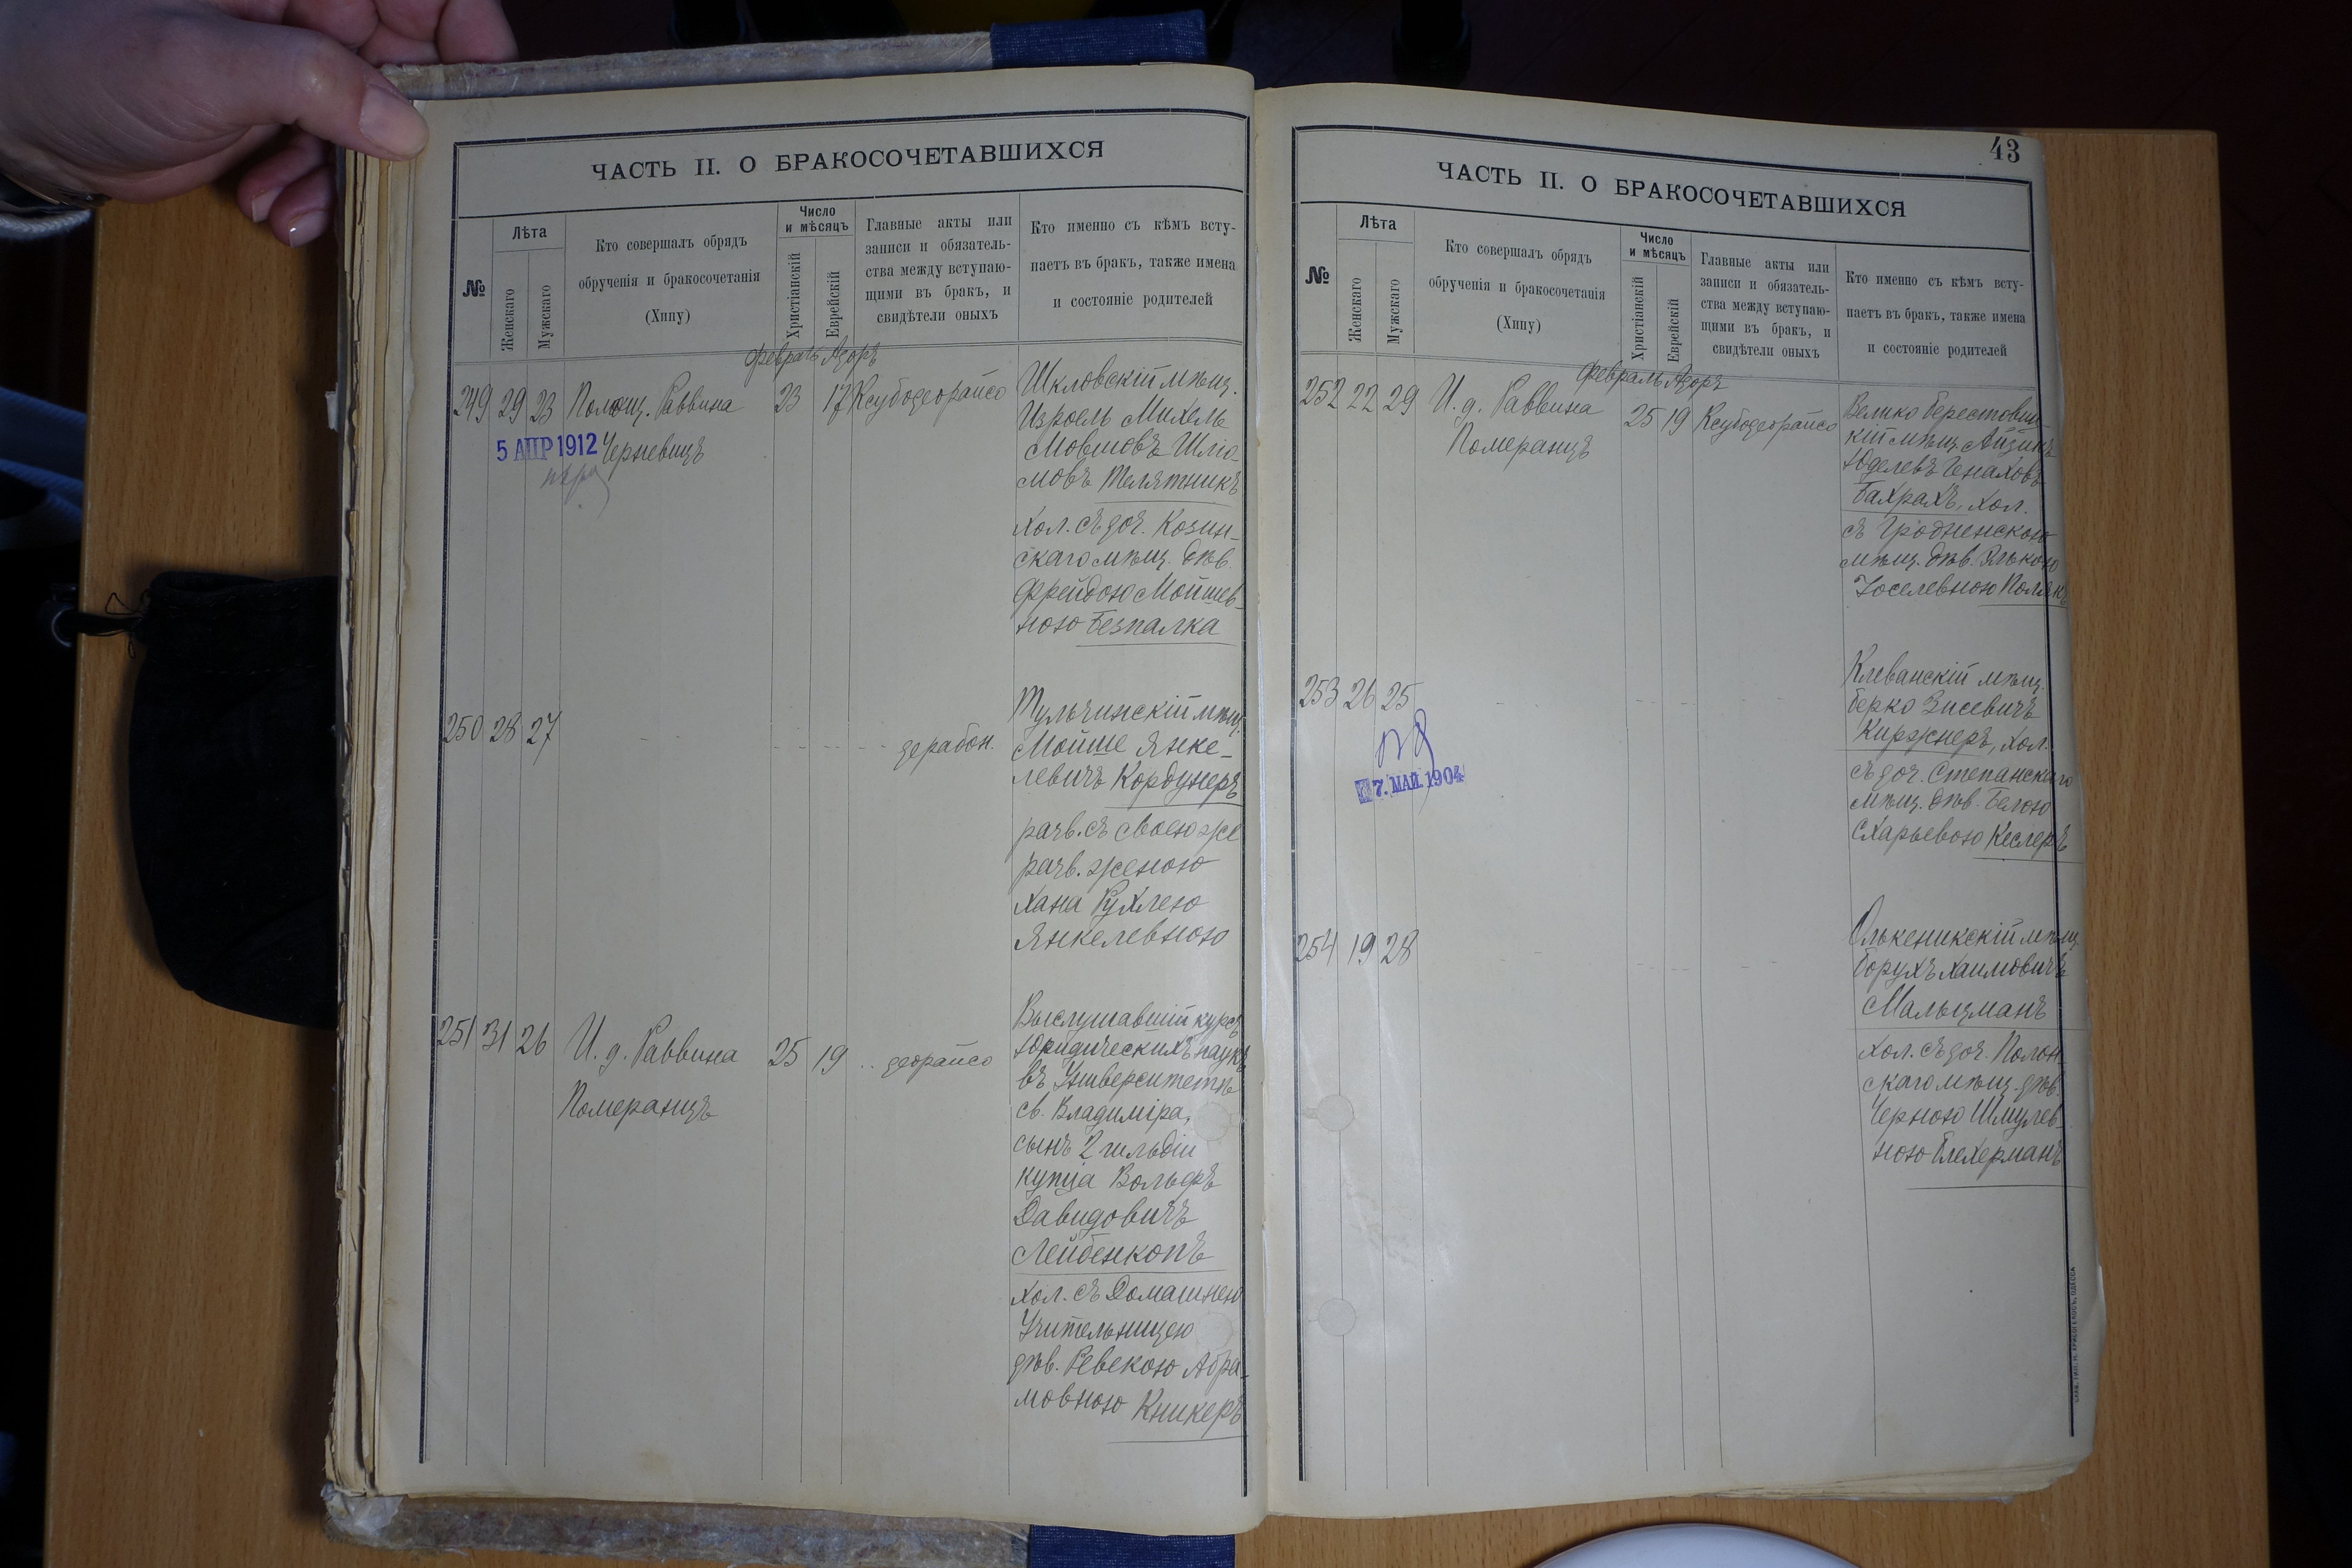 ЧАСТЬ II. О БРАКОСОЧЕТАВШИХСЯ
№
Лѣта
Женскаго
Мужскаго
Кто совершалъ обрядъ
обрученія и бракосочетанія
(Хипу)
Число
и мѣсяцъ
Христіанскій
Еврейскій
Главные акты или
записи и обязатель-
ства между вступаю-
щими въ бракъ, и
свидѣтели оныхъ
Кто именно съ кѣмъ всту-
паетъ въ бракъ, также имена
и состояніе родителей
Февраль Адоръ
249 29 23 Помощ. Раввина 23 17 Ксубодеорайсо
5 АПР 1912 Черневицъ
Шкловскій мѣщ.
Изроель Михель
Мовшовъ Шліо-
мовъ Телятникъ
хол. съ доч. Козин-
скаго мѣщ. дѣв.
Фрейдою Мойшев-
ною Безпалка
250 28 27 дерабон.
Тульчинскій мѣщ.
Мойше Янке-
левичъ Кордунеръ
разв. съ своею же
разв. женою
Хана Рухлею
Янкелевною
251 31 26 И. д. Раввина 25 19 деорайсо
Померанцъ
Выслушавшій курсъ
Юридическихъ наукъ
въ Университетѣ
св. Владиміра,
сынъ 2 гильдіи
купца Вольфъ
Давидовичъ
Лейбенкопъ
хол. съ Домашнею
Учительницею
дѣв. Ревекою Абра-
мовною Кникеръ
43
ЧАСТЬ II. О БРАКОСОЧЕТАВШИХСЯ
№
Лѣта
Женскаго
Мужскаго
Кто совершалъ обрядъ
обрученія и бракосочетанія
(Хипу)
Число
и мѣсяцъ
Христіанскій
Еврейскій
Главные акты или
записи и обязатель-
ства между вступаю-
щими въ бракъ, и
свидѣтели оныхъ
Кто именно съ кѣмъ всту-
паетъ въ бракъ, также имена
и состояніе родителей
Февраль Адоръ
252 22 29 И. д. Раввина 25 19 Ксубодеорайсо
Померанцъ
Велико Берестовиц-
кій мѣщ. Айзикъ
Юделевъ Генаховъ
Бахрахъ, хол.
съ Гродненскою
мѣщ. дѣв. Элькою
Іоселевною Полякъ
253 26 25
7. МАЙ. 1904
Клеванскій мѣщ.
Берко Зисевичъ
Киржнеръ, хол.
съ доч. Степанскаго
мѣщ. дѣв. Белою
Схарьевою Кеслеръ
254 19 28
Олькеникскій мѣщ.
Борухъ Хаимовичъ
Мальцманъ
хол. съ доч. Полон-
скаго мѣщ. дѣв.
Черною Шмулев-
ною Блехерманъ